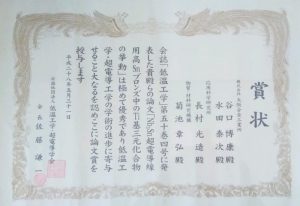 賞状
谷口 博康殿
永田 泰次殿
長村 光造殿
物質・材料研究機構
菊池 章弘殿
会誌「低温工学」第五十巻四号に発
表した貴殿らの論文「Nb₃Sn超電導線
用高Snブロンズ中のTi基三元化合物
の挙動」は極めて優秀であり低温工
学・超電導工学の学術の進歩に寄与
すること大なるを認めここに論文賞を
授与します
平成二十八年五月三十一日
公益社団法人 低温工学・超電導学会
会長 佐藤 謙一